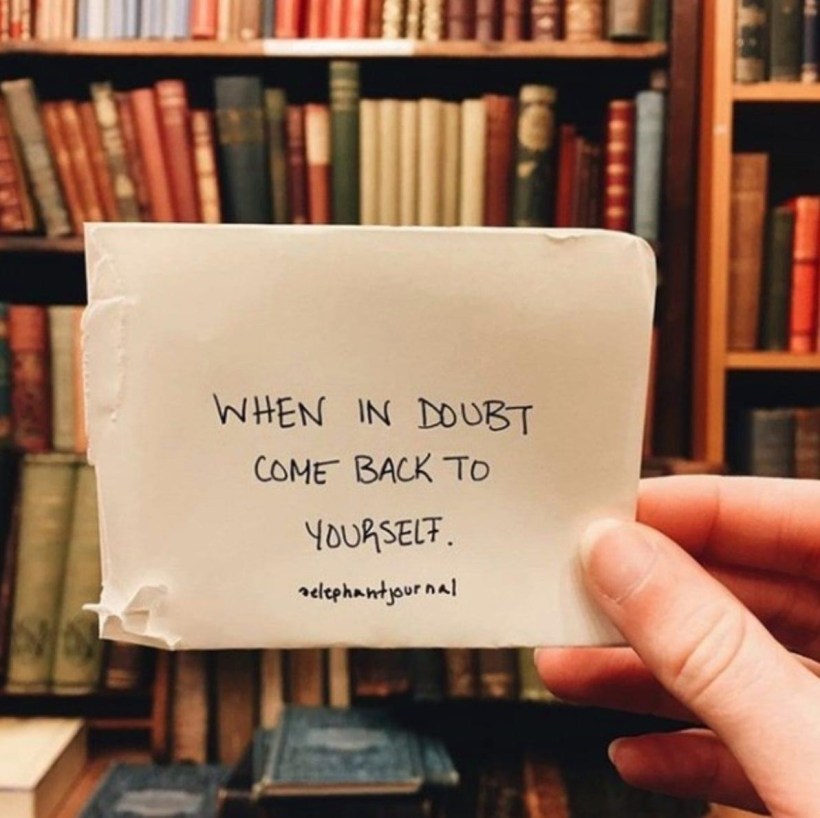 WHEN IN DOUBT
COME BACK TO
YOURSELF.
@elephantjournal